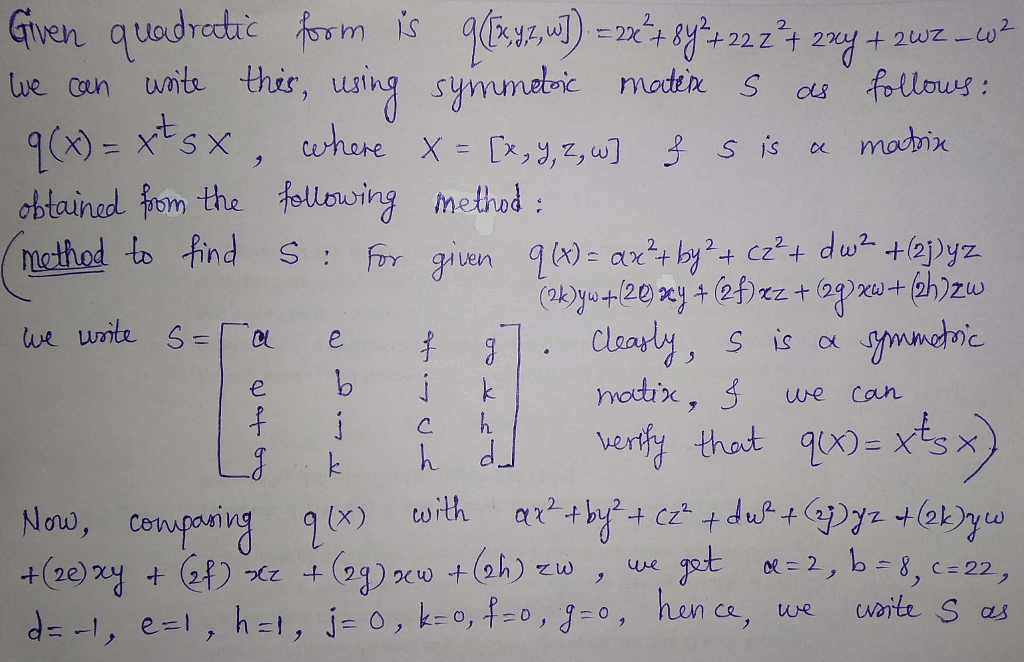 Given quadratic form is q([x,y,z,w]) = 2x²+ 8y²+22z²+ 2xy + 2wz - w²
We can write this, using symmetric matrix S as follows:
q(X) = X^t S X , where X = [x, y, z, w] & S is a matrix
obtained from the following method :
(method to find S : For given q(X) = ax²+by²+ cz²+ dw² +(2j)yz
(2k)yw+(2e)xy + (2f)xz + (2g)xw+(2h)zw
we write S = [ a e f g ] . Clearly, S is a symmetric
e b j k matix, & we can
f j c h verify that q(X) = X^t S X)
g k h d
Now, comparing q(X) with ax²+by²+ cz² + dw² + (2j)yz +(2k)yw
+(2e)xy + (2f) xz + (2g)xw + (2h) zw , we get a=2, b=8, c=22,
d=-1, e=1 , h=1, j=0, k=0, f=0, g=0, hence, we write S as